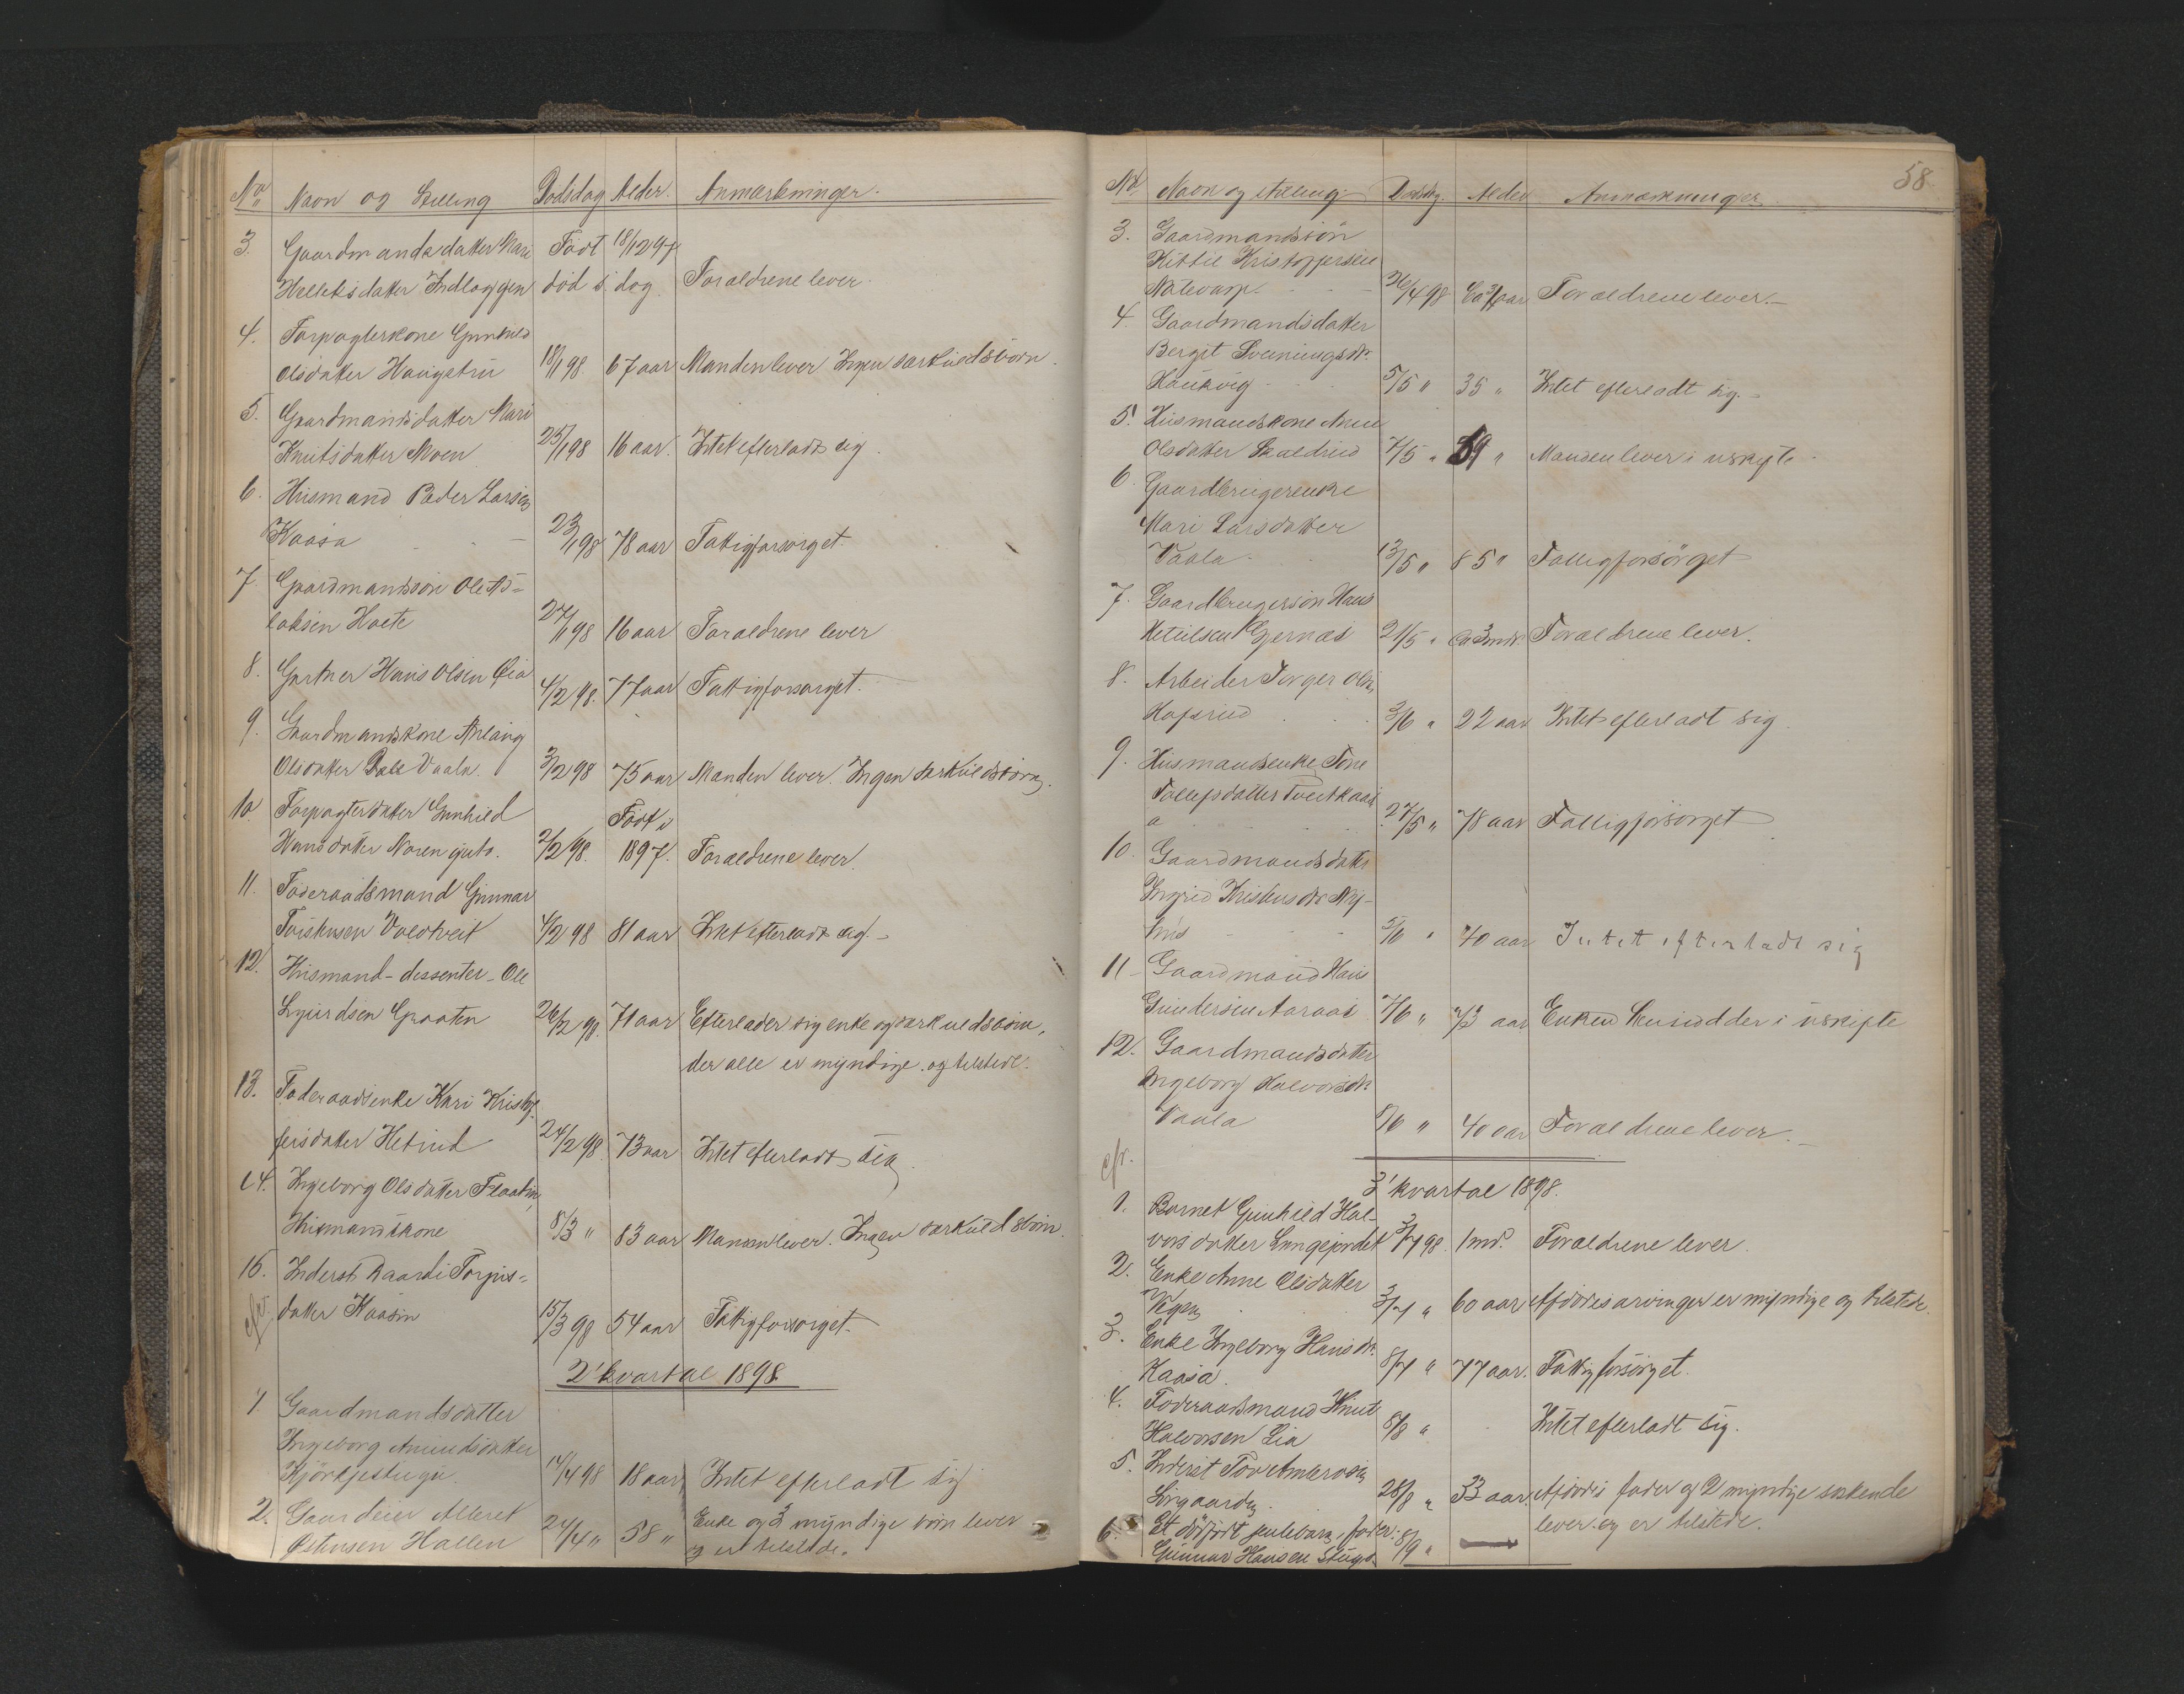 No Navn og Stilling Dødsdag Alder. Anmærkninger.
3. Gaardmandsdatter Mari Født 18/12 97
Helleksdatter Indlæggen død s. dag. Forældrene lever.
4. Forpagterkone Gunhild
Olsdatter Haugetun 18/1 98 67 aar Manden lever Ingen særkuldsbørn.
5. Gaardmandsdatter Mari
Knutsdatter Moen 25/1 98 16 aar. Intet efterladt sig.
6. Husmand Peder Larsen
Kaasa 23/1 98 78 aar Fattigforsørget.
7. Gaardmandssøn Ole As-
laksen Hoete 27/1 98 16 aar Forældrene lever
8. Gartner Hans Olsen Lia 4/2 98. 77 aar Fattigforsørget.
9. Gaardmandskone Aslaug
Olsdatter Dale Vaala. 3/2 98 75 aar Manden lever. Ingen særkuldsbørn.
10. Forpagterdatter Gunhild Født i
Hansdatter Norengjuto. 2/2 98. 1897. Forældrene lever.
11. Føderaadsmand Gunnar
Torstensen Valdtveit 4/2 98 81 aar Intet efterladt sig.
12. Husmand - dissenter - Ole
Sjurdsen Graaten 26/2 98. 71 aar Efterlader sig enke og særkuldsbørn,
der alle er myndige og tilstede.
13. Føderaadsenke Kari Kristof-
fersdatter Hetrud 24/2 98. 73 aar Intet efterladt sig.
14. Ingeborg Olsdatter Flaatin,
Husmandskone 8/3 " 83 aar Manden lever. Ingen særkuldsbørn.
15. Inderst Raardi Torjus-
cfr. datter Kaasin 15/3 98 54 aar Fattigforsørget.
2' kvartal 1898.
1. Gaardmandsdatter
Ingeborg Amundsdatter
Kjørkjestugu. 14/4 98 18 aar Intet efterladt sig
2. Gaardeier Alleret 24/4 " 58 " Enke og 3 myndige børn lever
Østensen Hallen og er tilstede.
58.
No Navn og stilling Dødsdag. Alder Anmærkninger
3. Gaardmandssøn
Kittil Kristoffersen
Natevarp. 26/4 98 Forældrene lever.
4. Gaardmandsdatter
Bergit Sveinungsdr.
Haukvig 5/5 " 35 " Intet efterladt sig.
5. Husmandskone Anne
Olsdatter Skaldrud 7/5 " 59 " Manden lever i uskifte
6. Gaardbrugerenke
Mari Larsdatter
Vaala 13/5 " 85 " Fattigforsørget
7. Gaardbrugersøn Hans
Ketilsen Gjernæs 21/5 " Ca 3 mdr. Forældrene lever.
8. Arbeider Torger Ols.
Hofsrud 3/6 " 22 aar Intet efterladt sig.
9. Husmandsenke Tone
Tollefsdatter Tveitkaas
a 27/5 " 78 aar Fattigforsørget
10. Gaardmandsdatter
Ingrid Kristensdr. Ny-
hus 5/6 " 40 aar Intet efterladt sig
11. Gaardmand Hans
Gundersen Aaraas 7/6 " 73 aar Enken hensidder i uskifte
12. Gaardmandsdatter
Ingeborg Halvorsdr.
Vaala 8/6 " 40 aar Forældrene lever.
cfr.
3' kvartal 1898.
1. Barnet Gunhild Hal-
vorsdatter Lungejordet 3/7 98. 1 md. Forældrene lever.
2. Enke Anne Olsdatter
3/7 " 60 aar Afdødes arvinger er myndige og tilstede.
3. Enke Ingeborg Hansdr.
Kaasa. 8/7 " 77 aar. Fattigforsørget.
4. Føderaadsmand Knut
Halvorsen Lia 8/8 " Intet efterladt sig.
5. Inderst Tor Ambrosen
28/8 " 33 aar. Afdødes fader og 2 myndige søskende
lever og er tilstede.
6. Et dødfødt pulebarn, fader: 8/9 "
Gunnar Hansen Stugo.